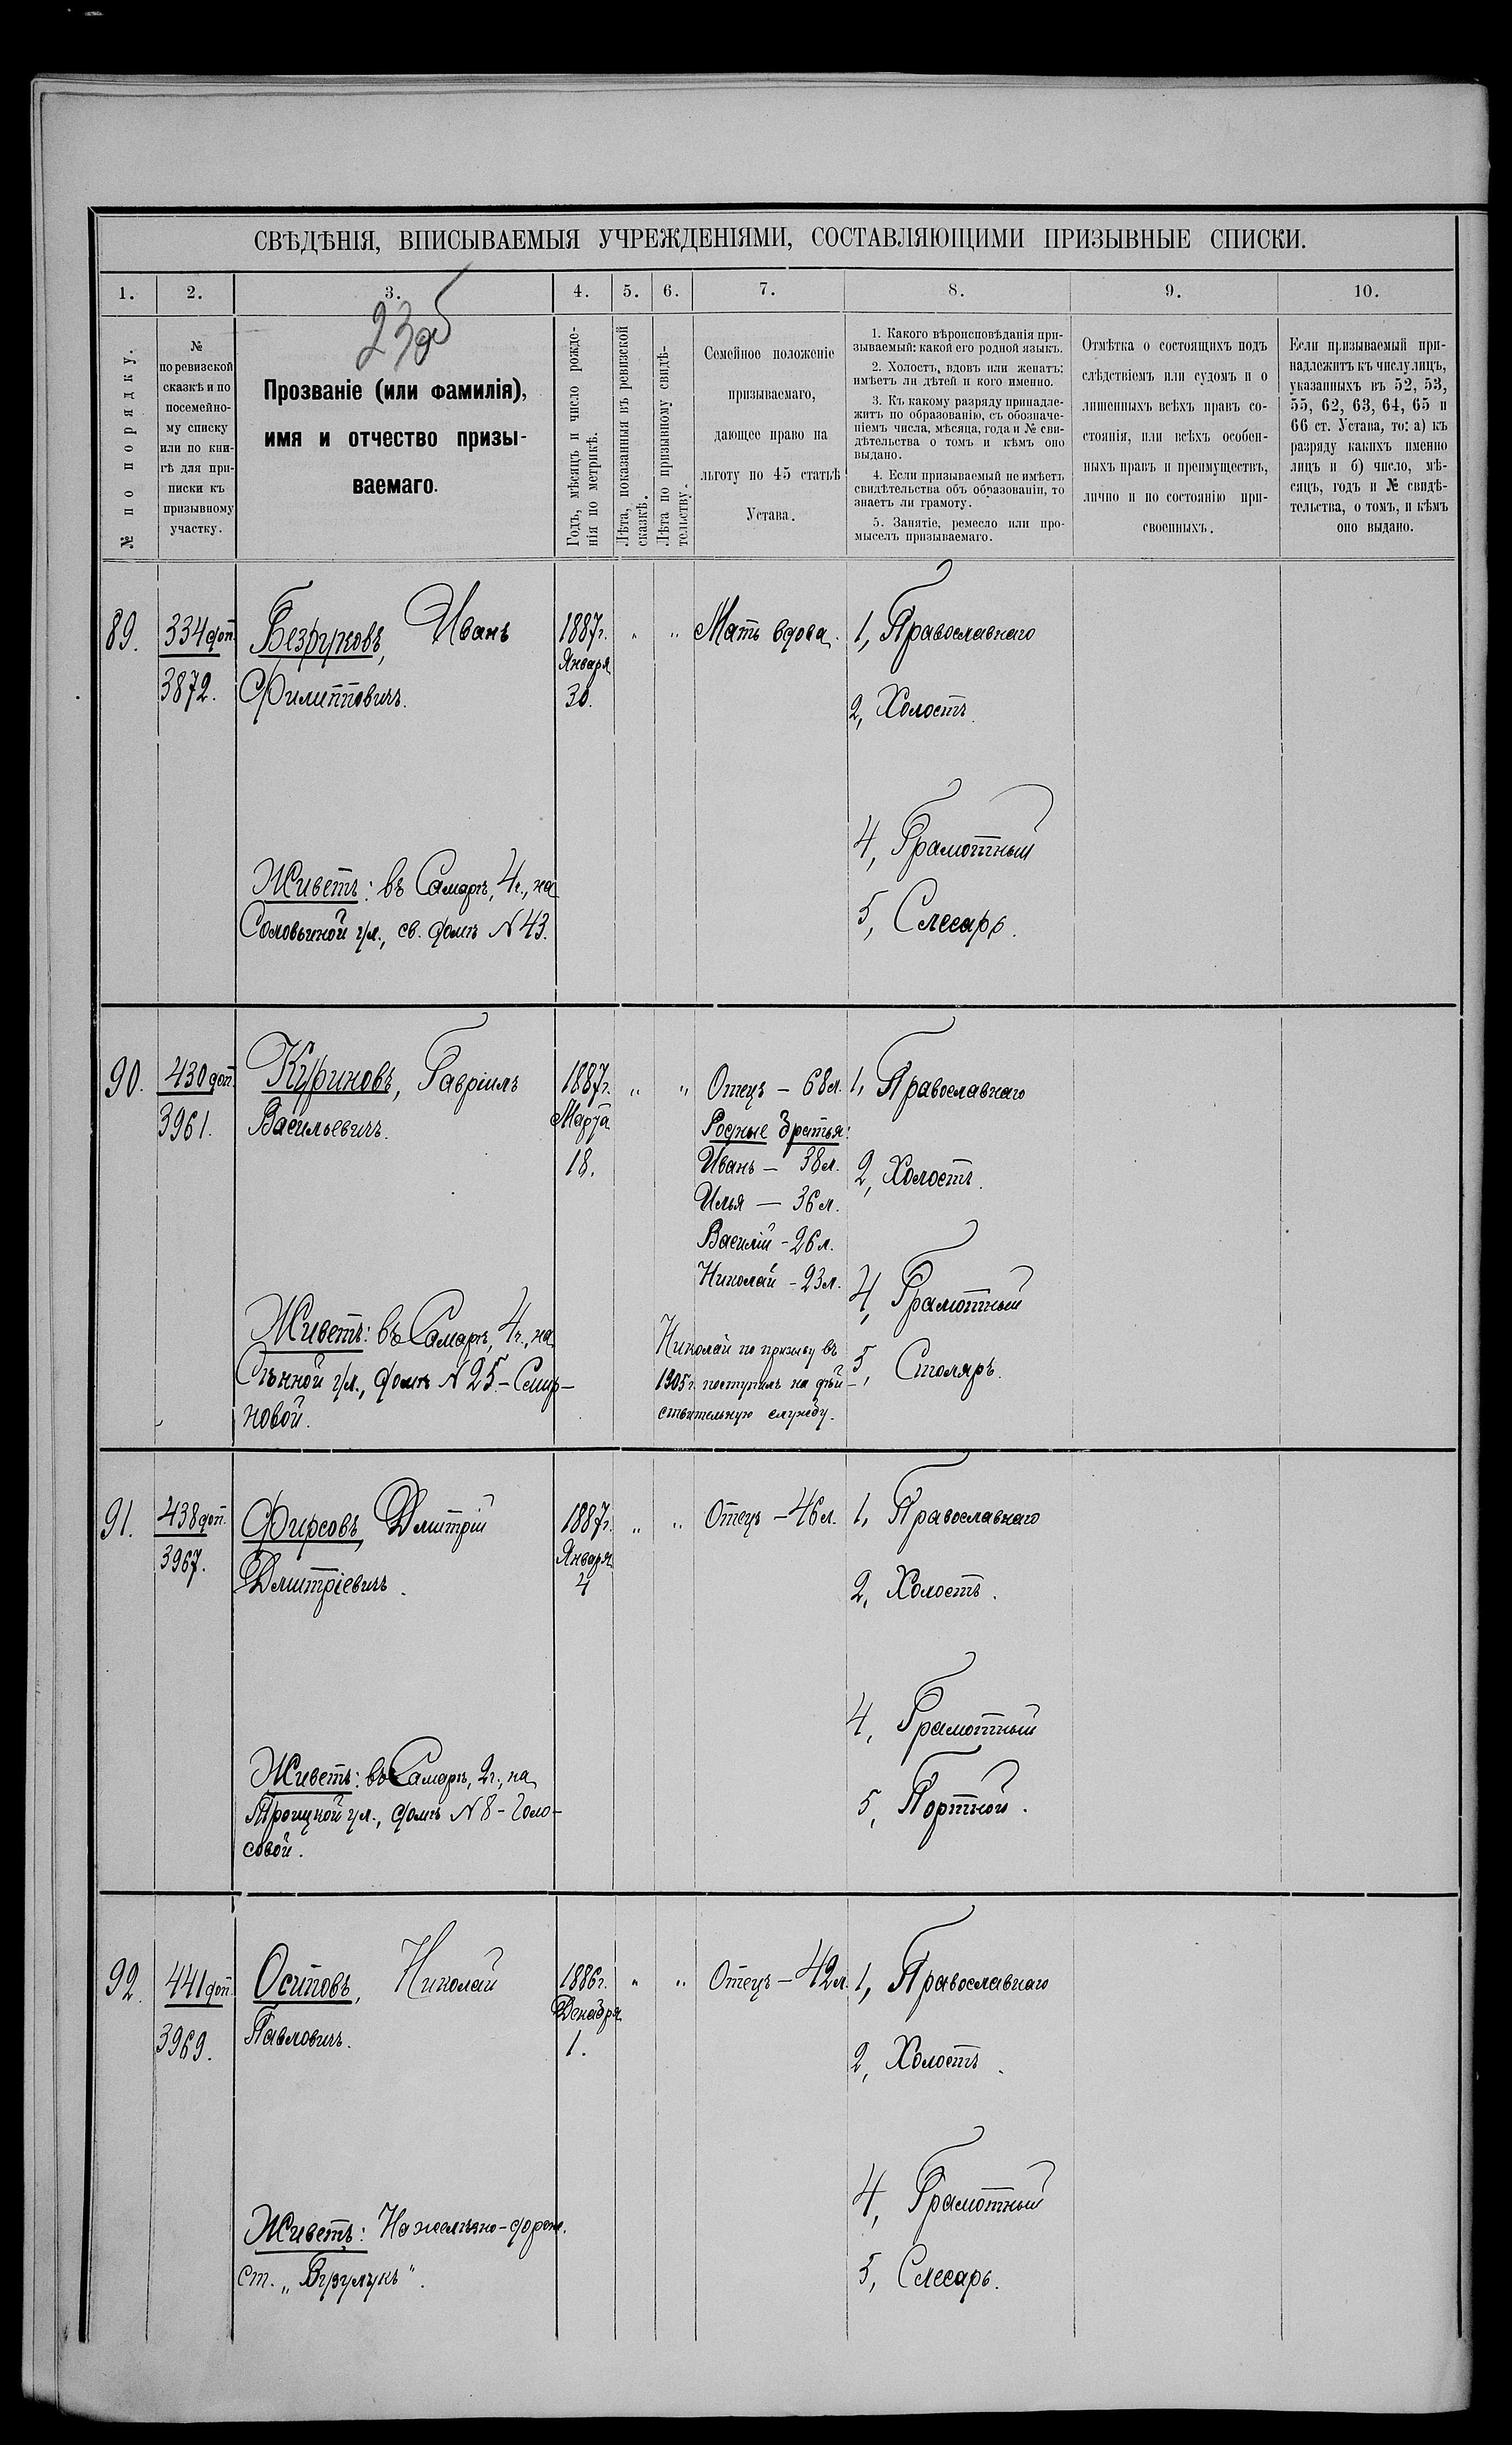 СВѢДѢНІЯ, ВПИСЫВАЕМЫЯ УЧРЕЖДЕНІЯМИ, СОСТАВЛЯЮЩИМИ ПРИЗЫВНЫЕ СПИСКИ.
1. 2. 3. 4. 5. 6. 7. 8. 9. 10.
23об
№ по порядку.
№
по ревизской
сказкѣ и по
посемейно-
му списку
или по кни-
гѣ для при-
писки къ
призывному
участку.
Прозваніе (или фамилія),
имя и отчество призы-
ваемаго.
Годъ, мѣсяцъ и число рожде-
нія по метрикѣ.
Лѣта, показанныя въ ревизской
сказкѣ.
Лѣта по призывному свидѣ-
тельству.
Семейное положеніе
призываемаго,
дающее право на
льготу по 45 статьѣ
Устава.
1. Какого вѣроисповѣданія при-
зываемый: какой его родной языкъ.
2. Холостъ, вдовъ или женатъ:
имѣетъ ли дѣтей и кого именно.
3. Къ какому разряду принадле-
житъ по образованію, съ обозначе-
ніемъ числа, мѣсяца, года и № сви-
дѣтельства о томъ и кѣмъ оно
выдано.
4. Если призываемый не имѣетъ
свидѣтельства объ образованіи, то
знаетъ ли грамоту.
5. Занятіе, ремесло или про-
мыселъ призываемаго.
Отмѣтка о состоящихъ подъ
слѣдствіемъ или судомъ и о
лишенныхъ всѣхъ правъ со-
стоянія, или всѣхъ особен-
ныхъ правъ и преимуществъ,
лично и по состоянію при-
своенныхъ.
Если призываемый при-
надлежитъ къ числу лицъ,
указанныхъ въ 52, 53,
55, 62, 63, 64, 65 и
66 ст. Устава, то: а) къ
разряду какихъ именно
лицъ и б) число, мѣ-
сяцъ, годъ и № свидѣ-
тельства, о томъ, и кѣмъ
оно выдано.
89. 334 доп. Безруковъ, Иванъ 1887г. " " Мать вдова. 1, Православнаго
Января
3872. Филипповичъ. 30. 2, Холостъ.
4, Грамотный
Живетъ: въ Самарѣ, 4ч., на
5, Слесарь.
Соловьиной ул., св. домъ № 43.
90. 430 доп. Куриновъ, Гавріилъ 1887г. " " Отецъ — 68л. 1, Православнаго
3961. Васильевичъ. Марта Родные братья:
18. Иванъ — 38л. 2, Холостъ.
Илья — 36л.
Василій - 26л.
Николай - 23л. 4, Грамотный
Живетъ: въ Самарѣ, 4ч., на
Николай по призыву въ
Сѣнной ул., домъ № 25. - Смир-
1905г. поступилъ на дѣй- 5, Столяръ.
новой.
ствительную службу.
91. 438 доп. Фирсовъ, Дмитрій 1887г. " " Отецъ — 46л. 1, Православнаго
3967. Дмитріевичъ. Января
4 2, Холостъ.
4, Грамотный
Живетъ: въ Самарѣ, 2ч., на
Троицкой ул., домъ № 8 - Голо-
5, Портной.
совой.
92. 441 доп. Осиповъ, Николай 1886г. " " Отецъ — 42л. 1, Православнаго
Декабря
3969. Павловичъ. 1. 2, Холостъ.
4, Грамотный
Живетъ: На желѣзно-дорож.
5, Слесарь.
ст. „Бузулукъ".